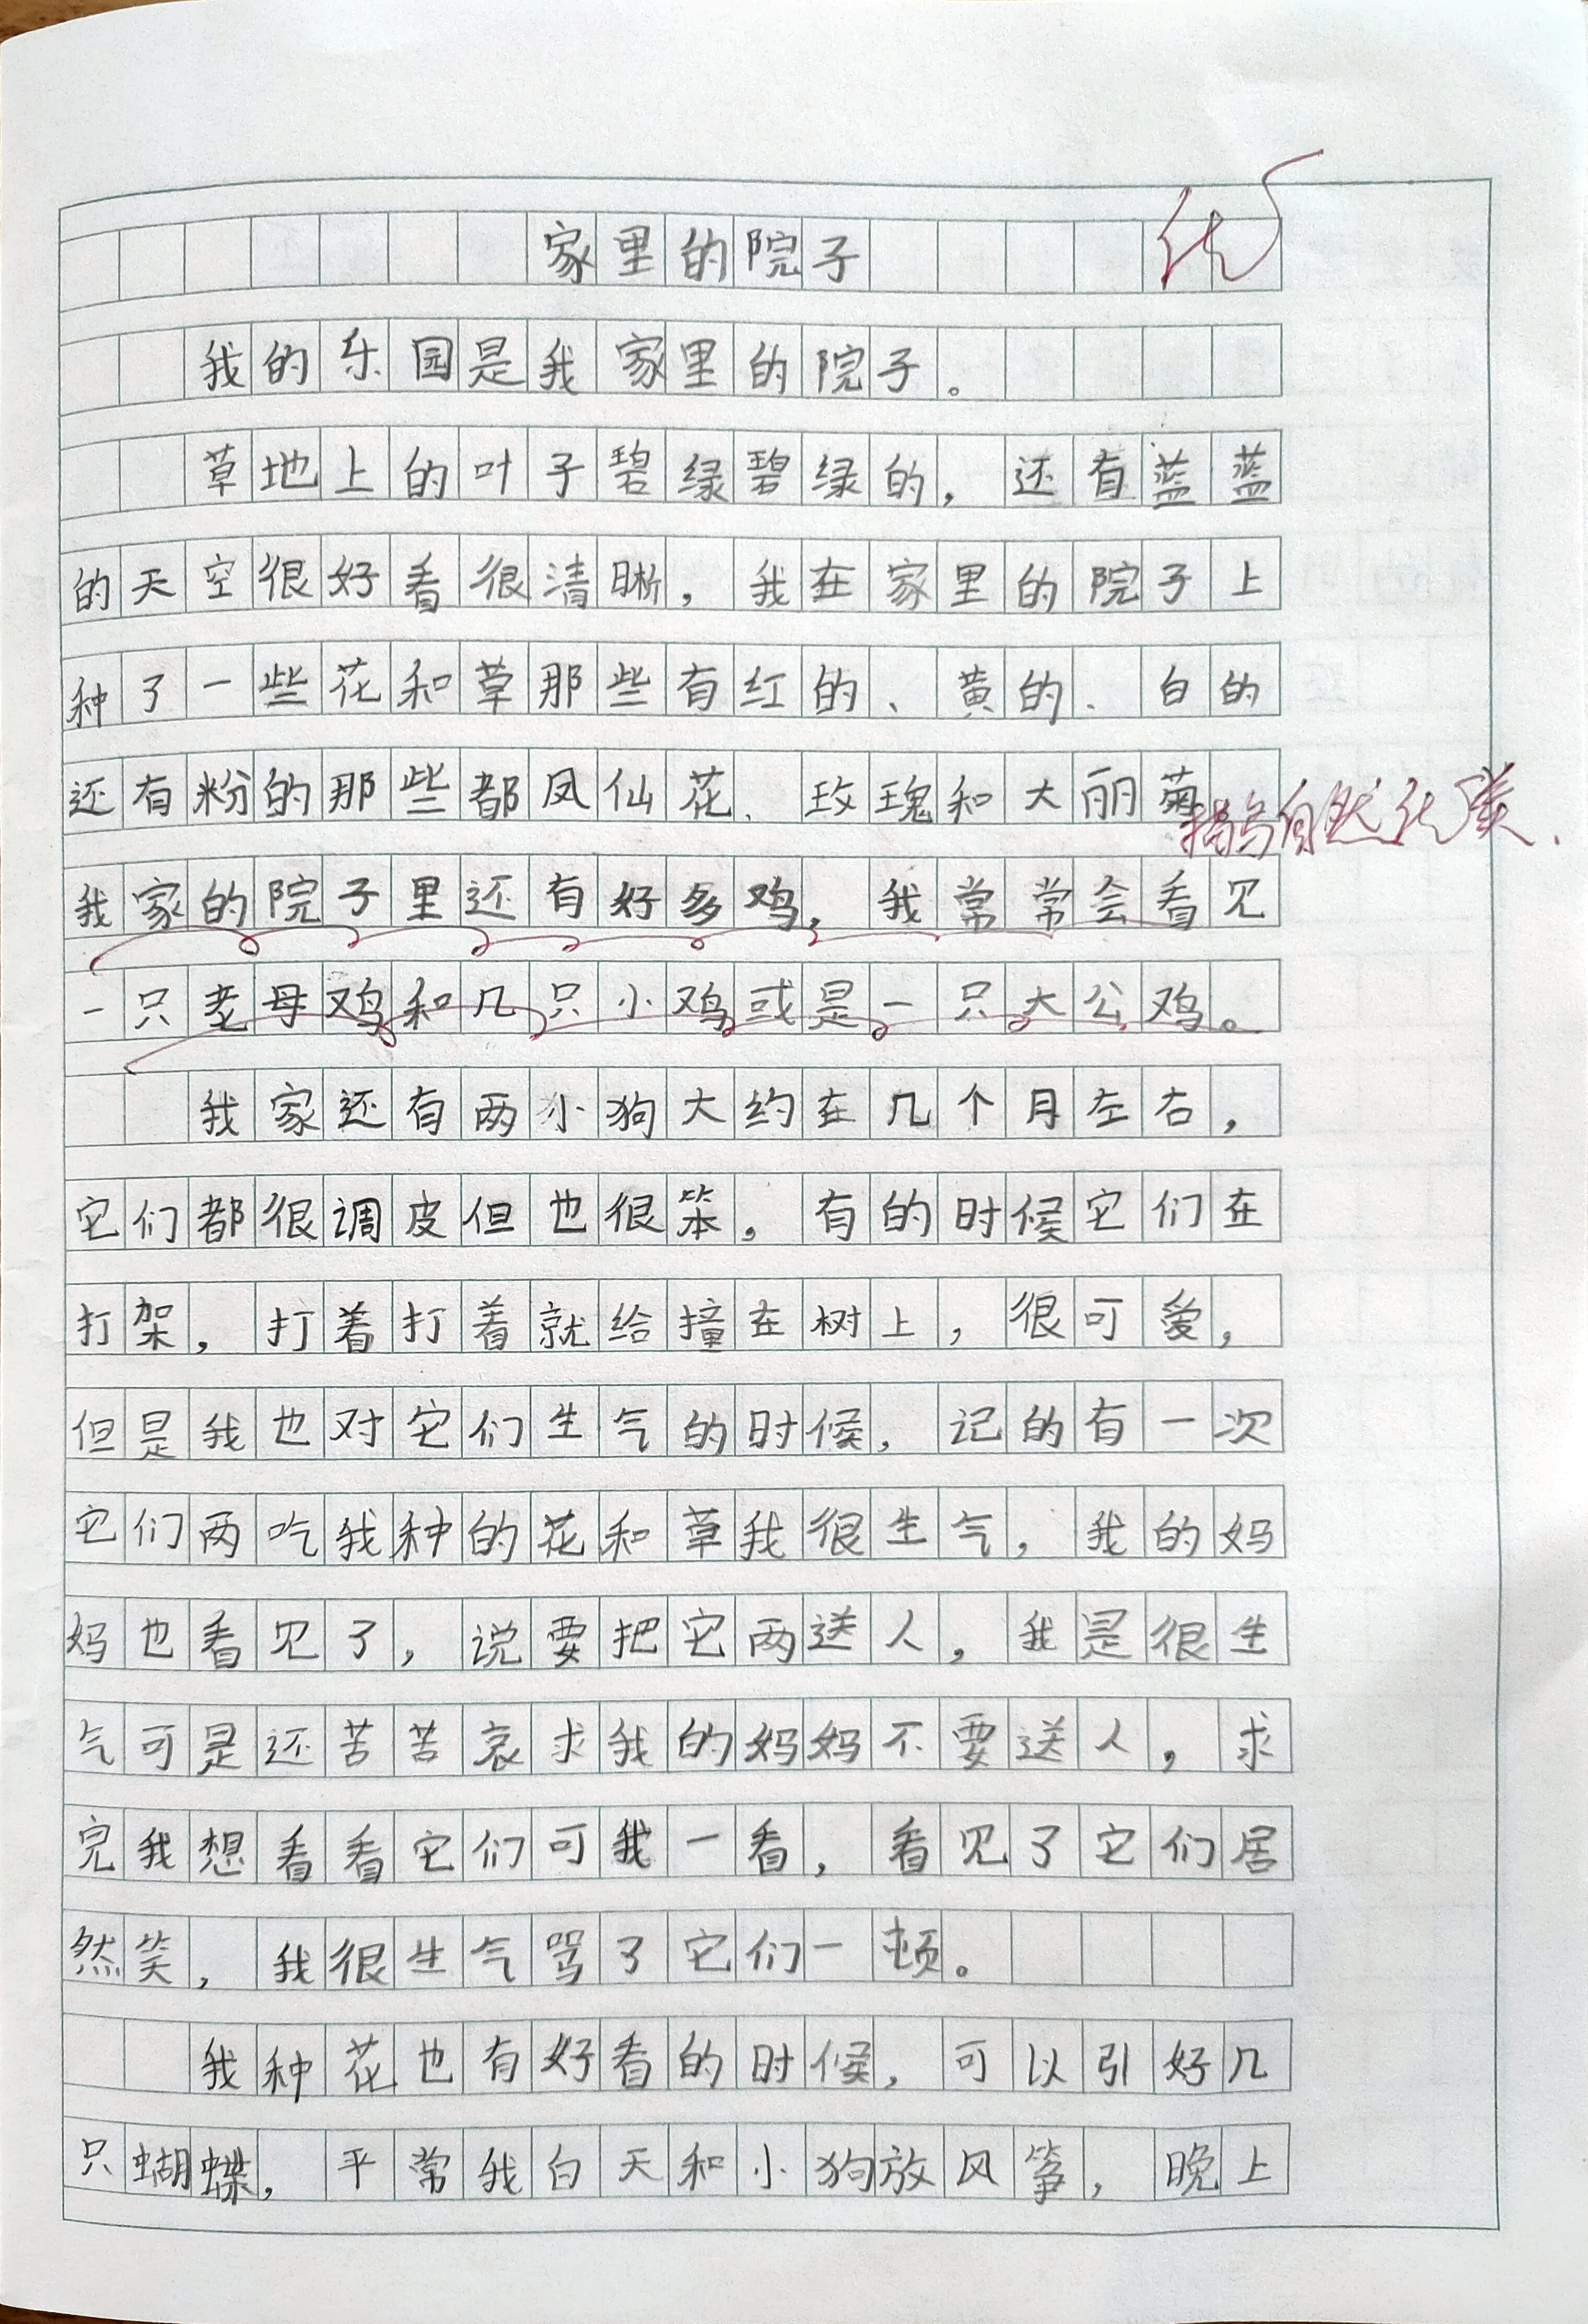 家里的院子
优
我的乐园是我家里的院子。
草地上的叶子碧绿碧绿的，还有蓝蓝
的天空很好看很清晰，我在家里的院子上
种了一些花和草那些有红的、黄的、白的
还有粉的那些都凤仙花、玫瑰和大丽菊
描写自然优美.
我家的院子里还有好多鸡，我常常会看见
一只老母鸡和几只小鸡或是一只大公鸡。
我家还有两小狗大约在几个月左右，
它们都很调皮但也很笨，有的时候它们在
打架，打着打着就给撞在树上，很可爱，
但是我也对它们生气的时候，记的有一次
它们两吃我种的花和草我很生气，我的妈
妈也看见了，说要把它两送人，我是很生
气可是还苦苦哀求我的妈妈不要送人，求
完我想看看它们可我一看，看见了它们居
然笑，我很生气骂了它们一顿。
我种花也有好看的时候，可以引好几
只蝴蝶，平常我白天和小狗放风筝，晚上